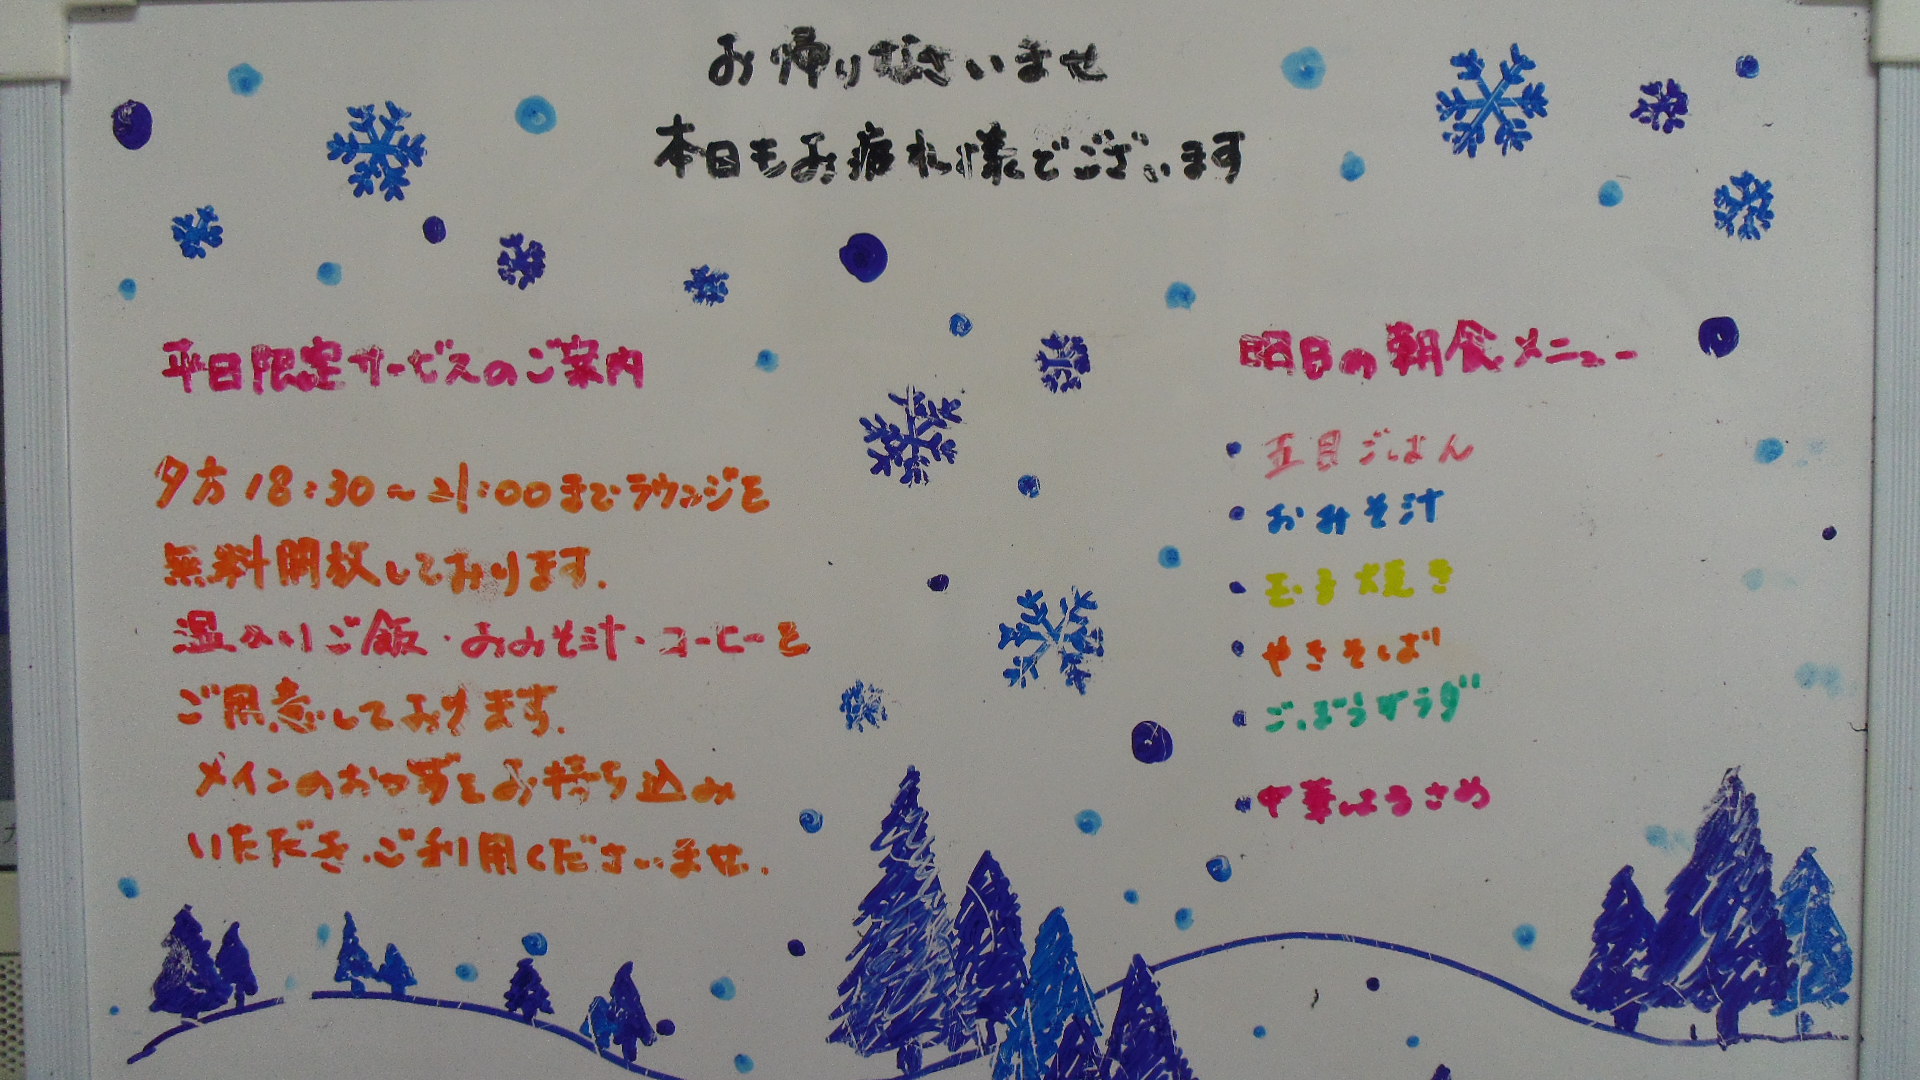 お帰りなさいませ
本日もお疲れ様でございます
平日限定サービスのご案内
夕方18:30～21:00までラウンジを
無料開放しております。
温かいご飯・おみそ汁・コーヒーを
ご用意しております。
メインのおかずをお持ち込み
いただき、ご利用くださいませ。
明日の朝食メニュー
・五目ごはん
・おみそ汁
・玉子焼き
・やきそば
・ごぼうサラダ
・中華はるさめ